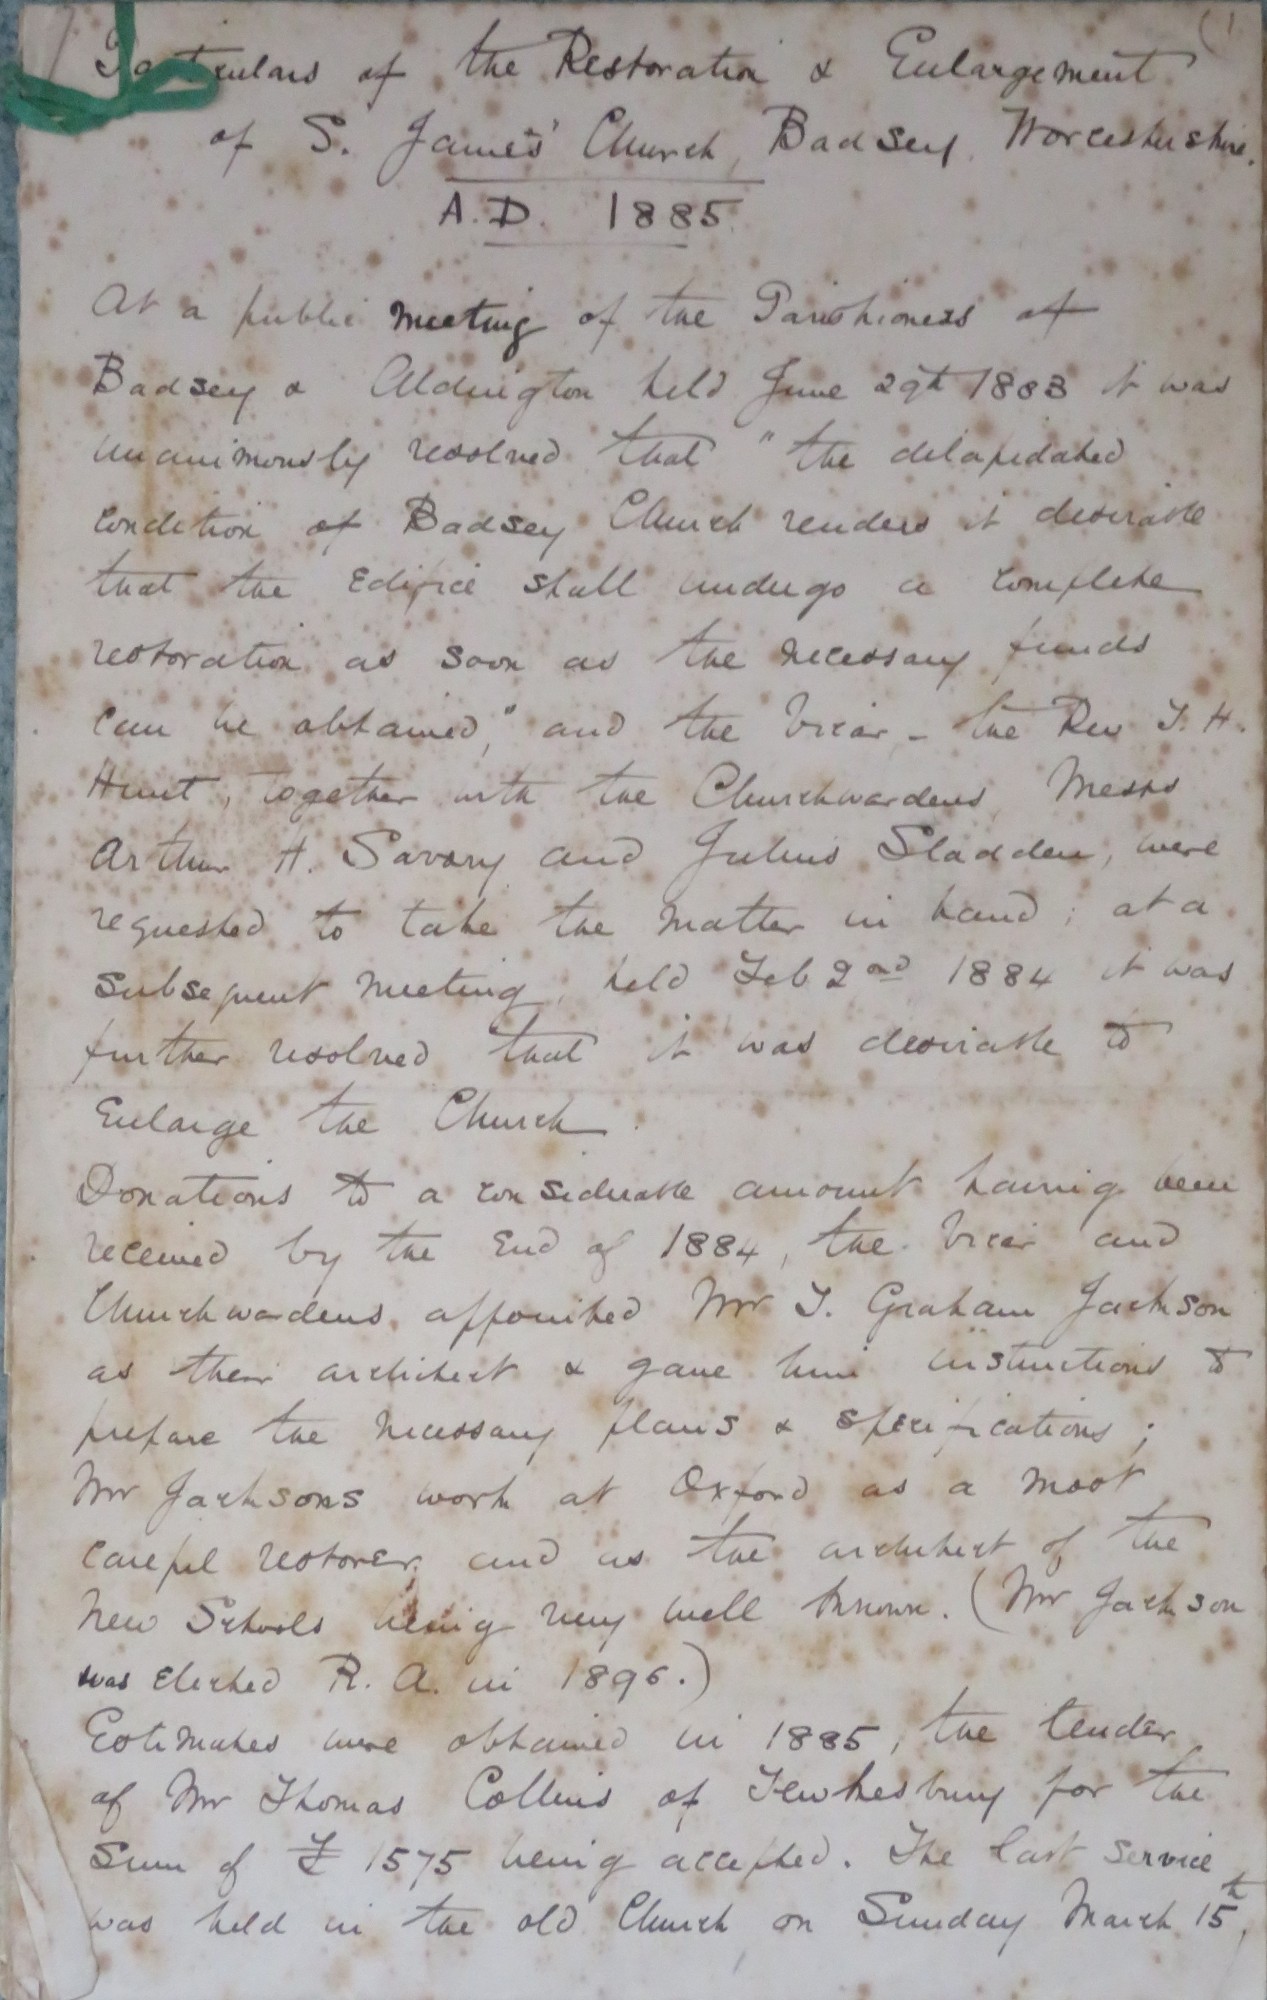 (1
Particulars of the Restoration & Enlargement
of S. James' Church, Badsey, Worcestershire.
A.D. 1885.
At a public meeting of the Parishioners of
Badsey & Aldington held June 29th 1883 it was
unanimously resolved that "the delapidated
condition of Badsey Church renders it desirable
that the Edifice shall undergo a complete
restoration as soon as the necessary funds
can be obtained," and the Vicar - the Rev T. H.
Hunt, together with the Churchwardens, Messrs
Arthur H. Savory and Julius Sladden, were
requested to take the matter in hand; at a
subsequent meeting, held Feb 2nd 1884 it was
further resolved that it was desirable to
Enlarge the Church.
Donations to a considerable amount having been
received by the End of 1884, the Vicar and
Churchwardens appointed Mr T. Graham Jackson
as their architect & gave him instructions to
prepare the necessary plans & specifications;
Mr Jacksons work at Oxford as a most
careful restorer, and as the architect of the
New Schools being very well known. (Mr Jackson
was Elected R. A. in 1896.)
Estimates were obtained in 1885, the tender
of Mr Thomas Collins of Tewkesbury for the
Sum of £ 1575 being accepted. The last service
was held in the old Church on Sunday March 15th,